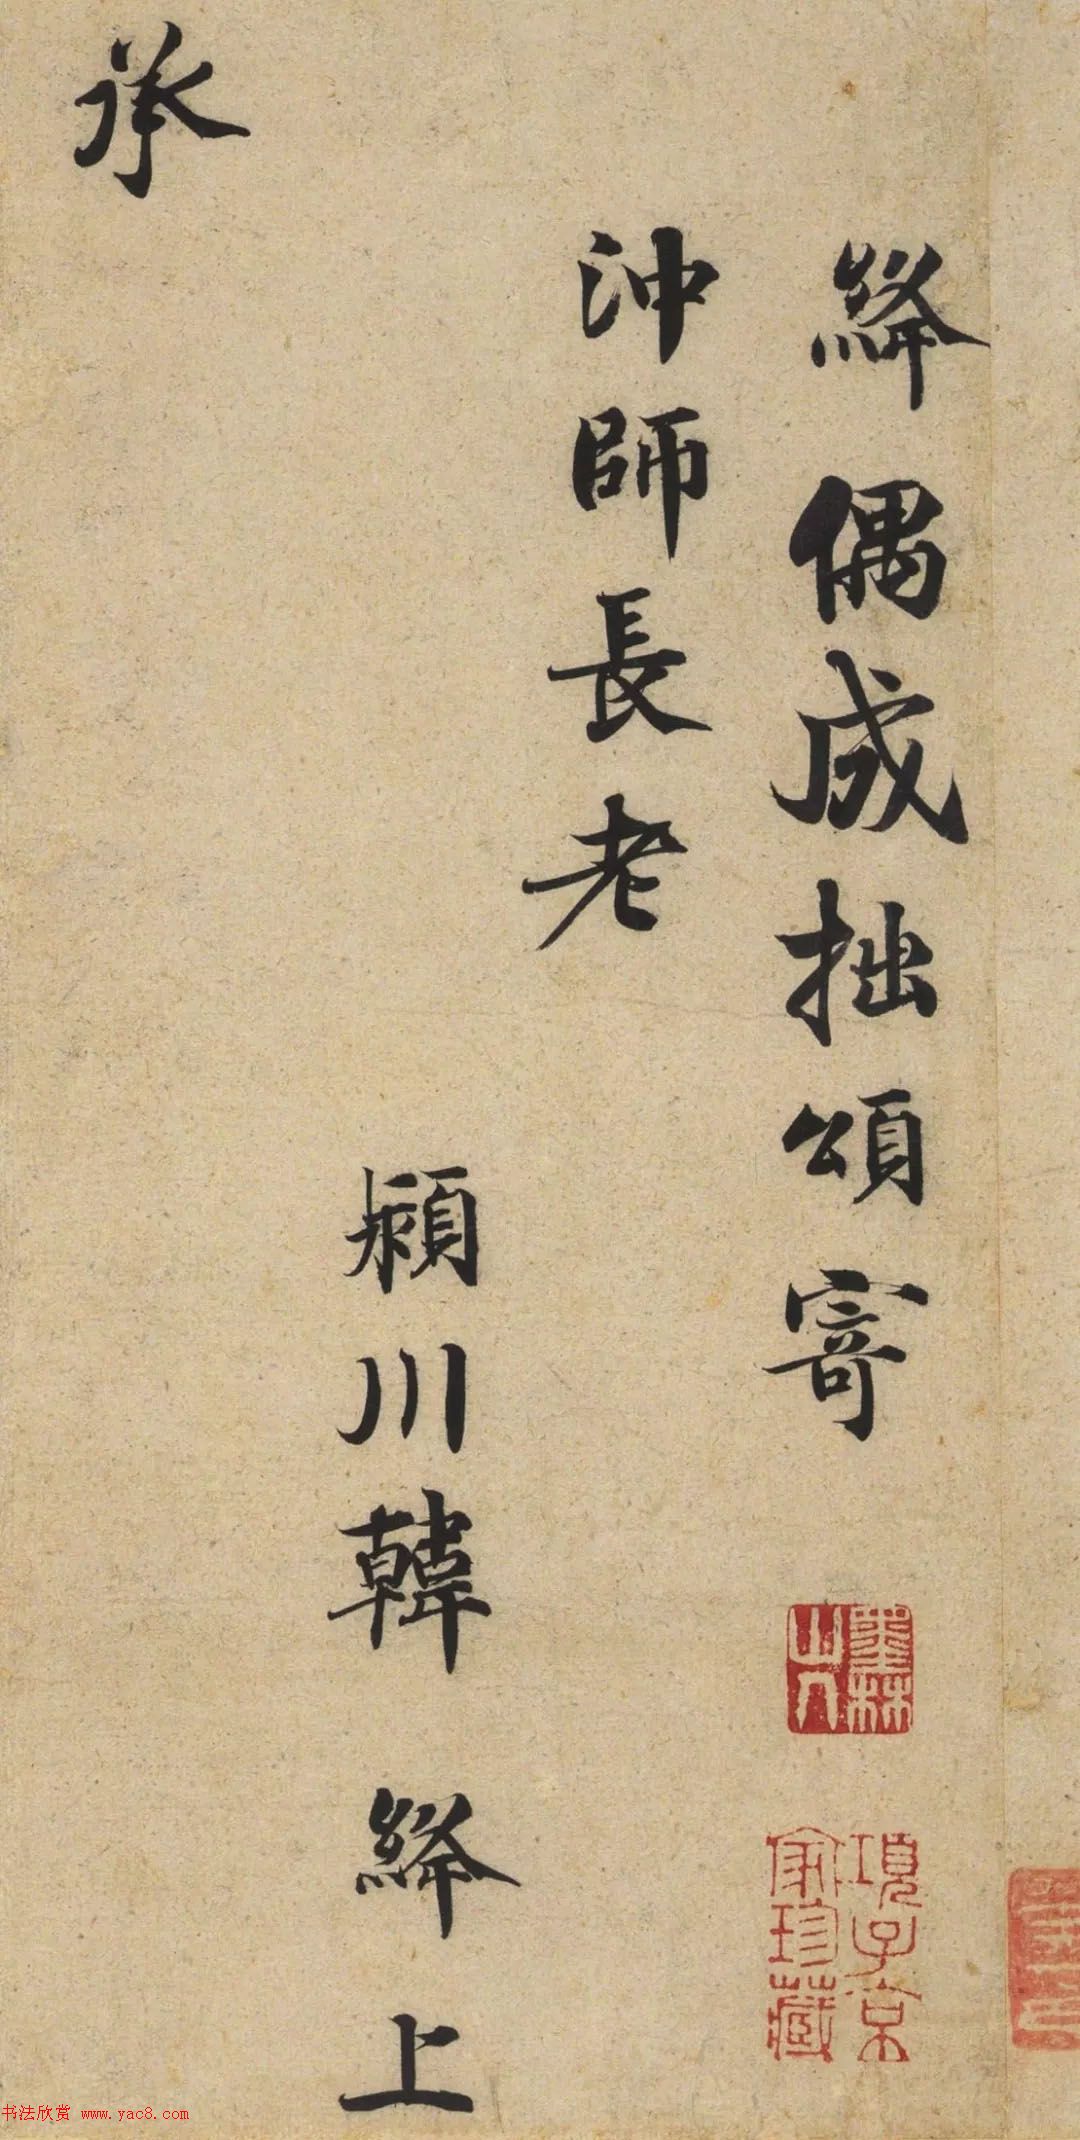 絳偶成拙頌寄
沖師長老
潁川韓絳上
承
墨林山人
項子京家珍藏
书法欣赏 www.yac8.com